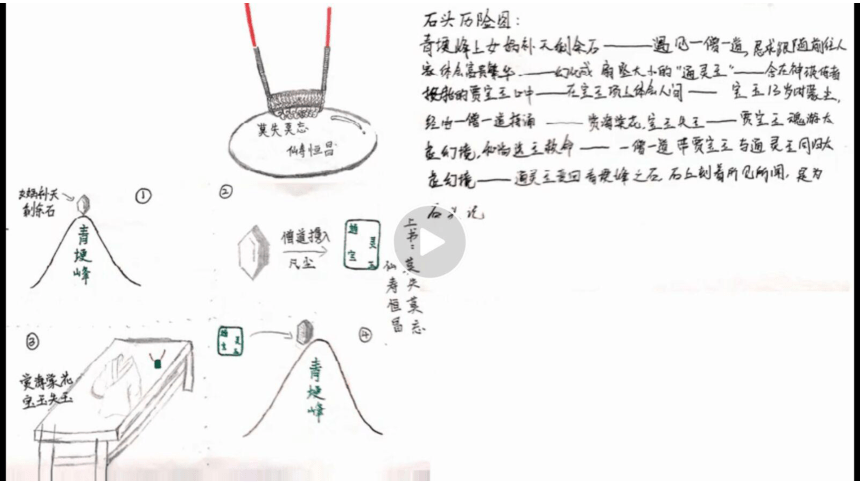 莫失莫忘
仙寿恒昌
①
女娲补天
剩余石
青埂峰
②
僧道携入
凡尘
通灵
宝玉
上书：莫失莫忘
仙寿恒昌
③
赏海棠花
宝玉失玉
④
通灵
宝玉
青埂峰
石头历险图：
青埂峰上女娲补天剩余石——遇见一僧一道，恳求跟随前往人
家体会富贵繁华——幻化成扇坠大小的“通灵玉”——含在神瑛侍者
投胎的贾宝玉口中——在宝玉项上体会人间——宝玉13岁时蒙尘，
经由一僧一道持诵——赏海棠花，宝玉失玉——贾宝玉魂游太
虚幻境，和尚送玉救命——一僧一道带贾宝玉与通灵玉同归太
虚幻境——通灵玉变回青埂峰之石，石上刻着所见所闻，是为
石头记